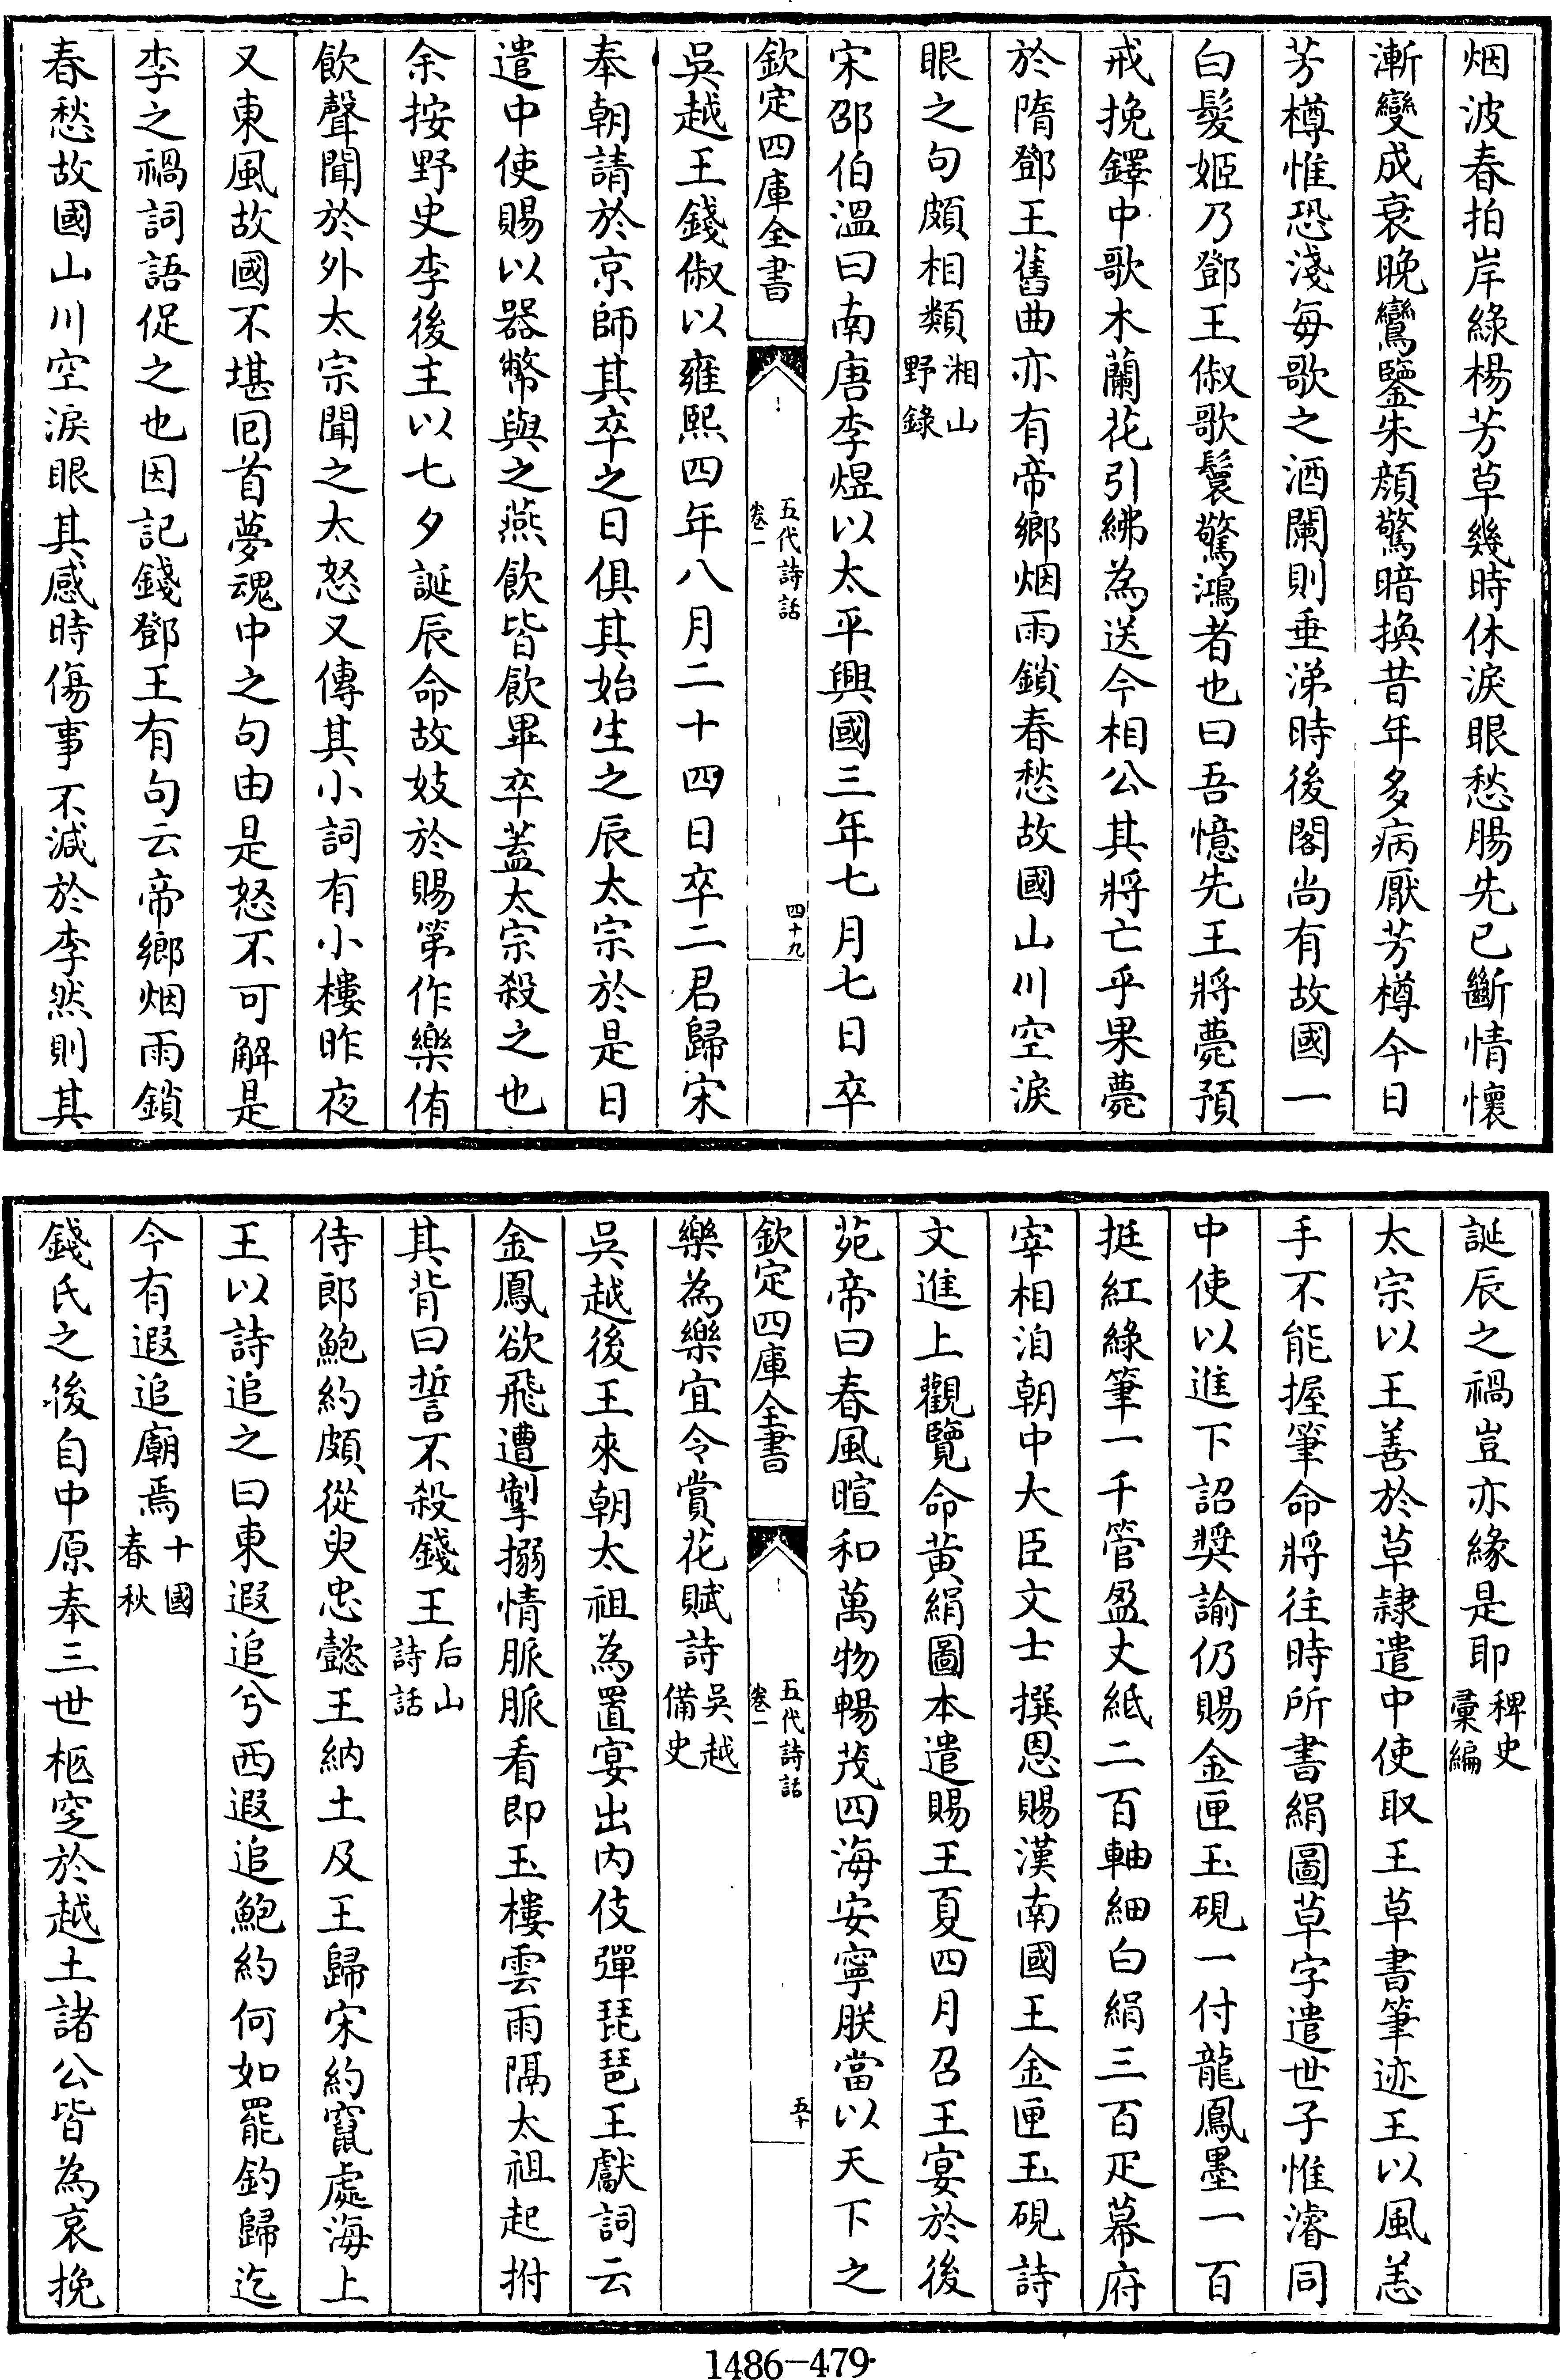 烟波春拍岸綠楊芳草幾時休淚眼愁腸先已斷情懷
漸變成衰晚鸞鑒朱顔驚暗換昔年多病厭芳樽今日
芳樽惟恐淺每歌之酒闌則垂涕時後閣尚有故國一
白髮姬乃鄧王俶歌鬟驚鴻者也曰吾憶先王將薨預
戒挽鐸中歌木蘭花引紼為送今相公其將亡乎果薨
於隋鄧王舊曲亦有帝鄉烟雨鎖春愁故國山川空淚
眼之句頗相類湘山野錄
宋邵伯溫曰南唐李煜以太平興國三年七月七日卒
欽定四庫全書
五代詩話
卷一
四十九
吳越王錢俶以雍熙四年八月二十四日卒二君歸宋
奉朝請於京師其卒之日俱其始生之辰太宗於是日
遣中使賜以器幣與之燕飲皆飲畢卒蓋太宗殺之也
余按野史李後主以七夕誕辰命故妓於賜第作樂侑
飲聲聞於外太宗聞之太怒又傳其小詞有小樓昨夜
又東風故國不堪回首夢魂中之句由是怒不可解是
李之禍詞語促之也因記錢鄧王有句云帝鄉烟雨鎖
春愁故國山川空淚眼其感時傷事不減於李然則其
誕辰之禍豈亦緣是耶稗史彙編
太宗以王善於草隸遣中使取王草書筆迹王以風恙
手不能握筆命將往時所書絹圖草字遣世子惟濬同
中使以進下詔獎諭仍賜金匣玉硯一付龍鳳墨一百
挺紅綠筆一千管盈丈紙二百軸細白絹三百疋幕府
宰相洎朝中大臣文士撰恩賜漢南國王金匣玉硯詩
文進上觀覽命黃絹圖本遣賜王夏四月召王宴於後
苑帝曰春風暄和萬物暢茂四海安寧朕當以天下之
欽定四庫全書
五代詩話
卷一
五十
樂為樂宜令賞花賦詩吳越備史
吳越後王來朝太祖為置宴出內伎彈琵琶王獻詞云
金鳳欲飛遭掣搦情脈脈看即玉樓雲雨隔太祖起拊
其背曰誓不殺錢王后山詩話
侍郎鮑約頗從臾忠懿王納土及王歸宋約竄處海上
王以詩追之曰東遐追兮西遐追鮑約何如罷釣歸迄
今有遐追廟焉十國春秋
錢氏之後自中原奉三世柩窆於越土諸公皆為哀挽
1486-479